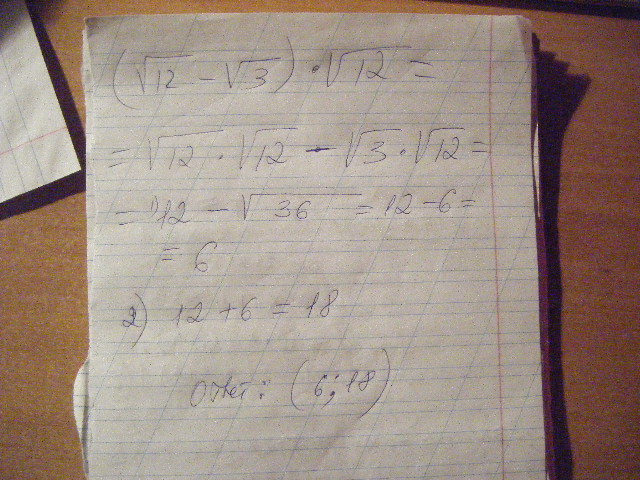 (√12 - √3) · √12 =
= √12 · √12 - √3 · √12 =
= 12 - √36 = 12 - 6 =
= 6
2) 12 + 6 = 18
Ответ: (6; 18)